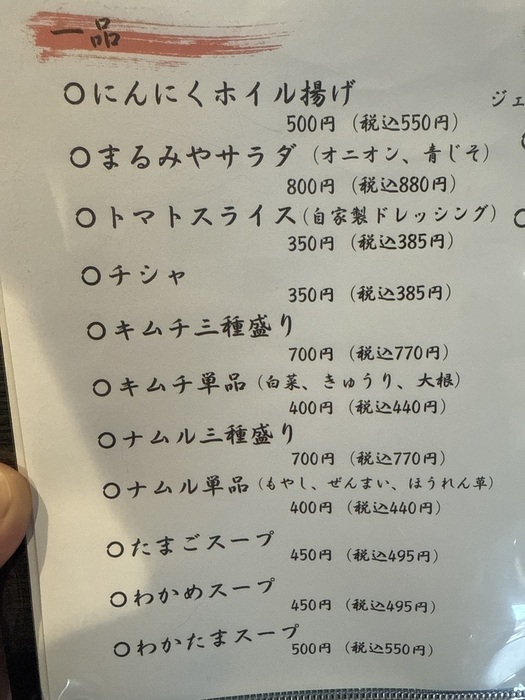 一品
○にんにくホイル揚げ
500円（税込550円）
○まるみやサラダ（オニオン、青じそ）
800円（税込880円）
○トマトスライス（自家製ドレッシング）
350円（税込385円）
○チシャ
350円（税込385円）
○キムチ三種盛り
700円（税込770円）
○キムチ単品（白菜、きゅうり、大根）
400円（税込440円）
○ナムル三種盛り
700円（税込770円）
○ナムル単品（もやし、ぜんまい、ほうれん草）
400円（税込440円）
○たまごスープ
450円（税込495円）
○わかめスープ
450円（税込495円）
○わかたまスープ
500円（税込550円）
ジェ